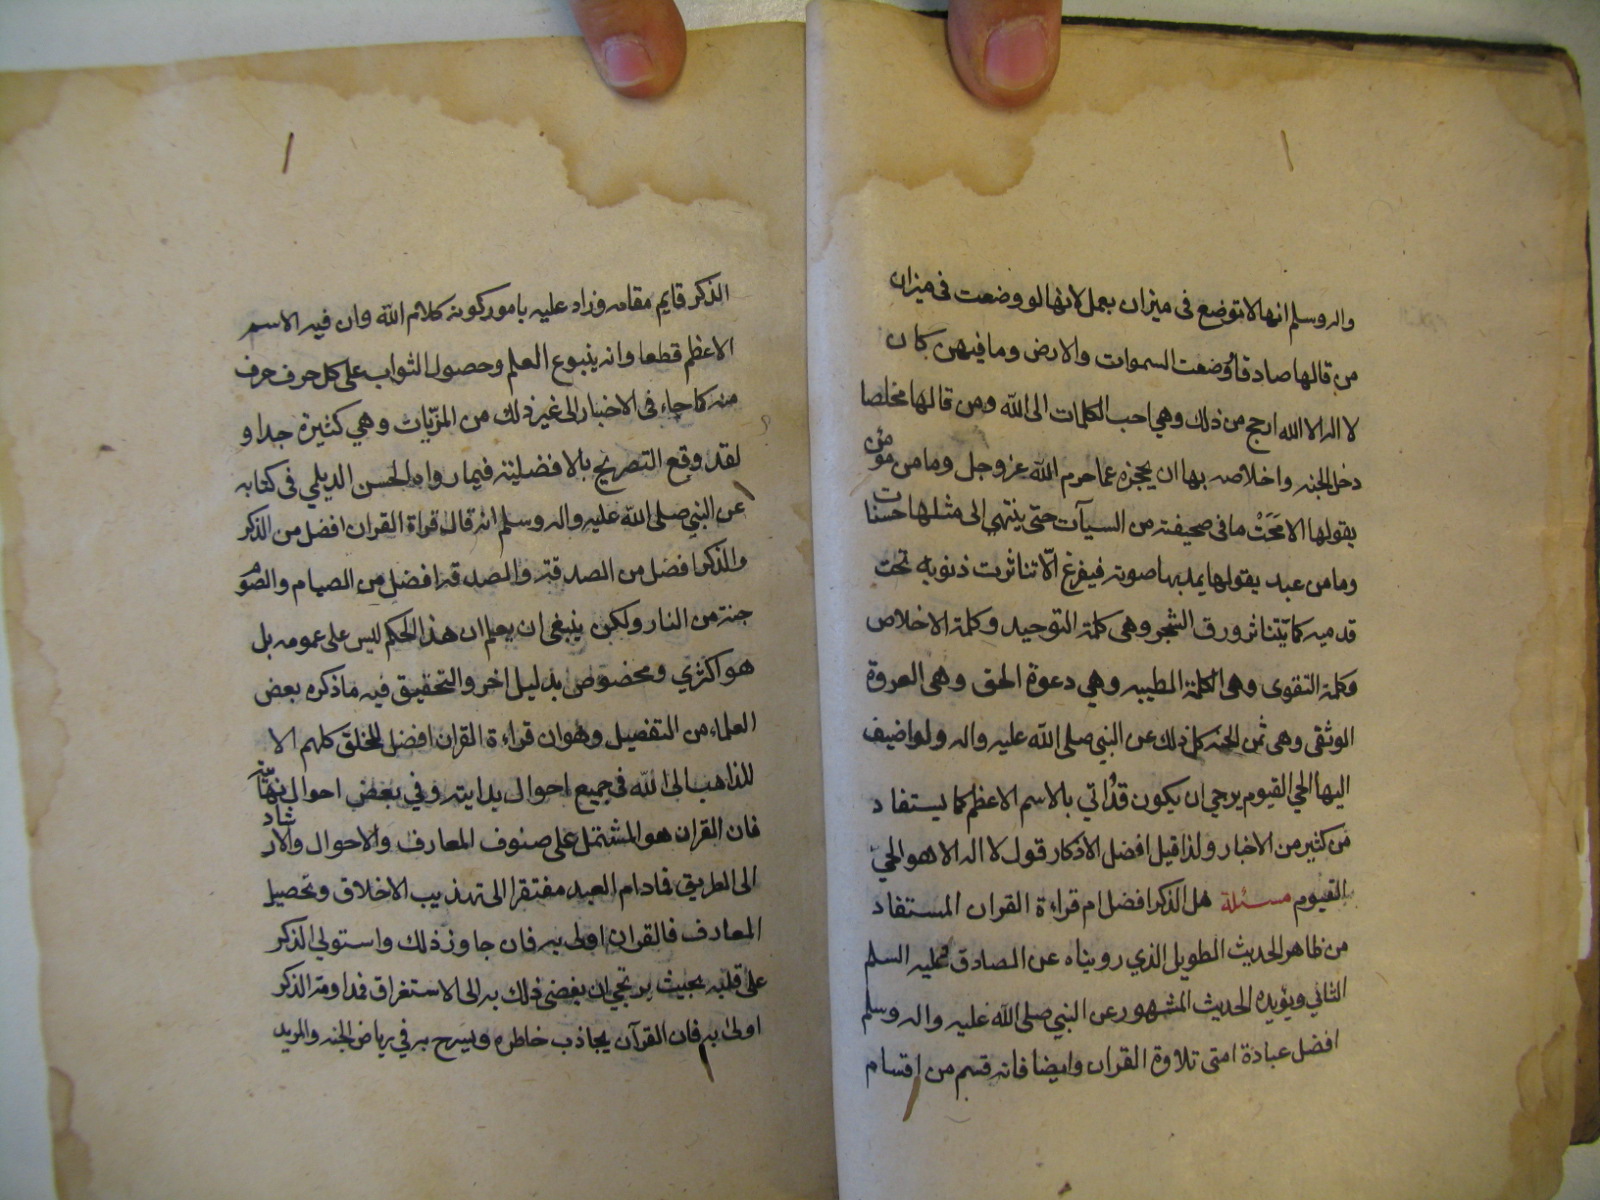 واله وسلم انها لا توضع فى ميزان بعمل لانها لو وضعت فى ميزان
من قالها صادقا وُضعت السموات والارض وما فيهن كان
لا اله الا الله ارجح من ذلك وهي احب الكلمات الى الله ومن قالها مخلصا
دخل الجنه واخلاصه بها ان يحجزه عما حرم الله عز وجل وما من مؤمن
يقولها الا مَحَتْ ما فى صحيفته من السيآت حتى ينتهي الى مثلها حسنات
وما من عبد يقولها يمد بها صوته فيفرغ الّا تناثرت ذنوبه تحت
قدميه كما يتناثر ورق الشجر وهى كلمة التوحيد وكلمة الاخلاص
وكلمة التقوى وهى الكلمة الطيبه وهي دعوة الحق وهى العروة
الوثقى وهى ثمن الجنه كل ذلك عن النبي صلى الله عليه واله ولو اضيف
اليها الحي القيوم يرجى ان يكون قد اتي بالاسم الاعظم كما يستفاد
من كثير من الاخبار ولذا قيل افضل الاذكار قول لا اله الا هو الحيّ
القيوم مسئلة هل الذكر افضل ام قراءة القران المستفاد
من ظاهر الحديث الطويل الذي رويناه عن الصادق عليه السلم
الثاني ويؤيده الحديث المشهور عن النبي صلى الله عليه واله وسلم
افضل عبادة امتى تلاوة القران وايضا فانه قسم من اقسام
الذكر قايم مقامه وزاد عليه بامور كونه كلام الله وان فيه الاسم
الاعظم قطعا وانه ينبوع العلم وحصول الثواب على كل حرف حرف
منه كما جاء فى الاخبار الى غير ذلك من المزيّات وهي كثيرة جدا و
لقد وقع التصريح بالافضلية فيما رواه الحسن الديلي فى كتابه
عن النبي صلى الله عليه واله وسلم انه قال قراة القران افضل من الذكر
والذكر افضل من الصدقة والصدقة افضل من الصيام والصوم
جنة من النار ولكن ينبغى ان يعلم ان هذا الحكم ليس على عمومه بل
هو اكثري ومخصوص بدليل اخر والتحقيق فيه ما ذكره بعض
العلماء من التفصيل وهو ان قراءة القران افضل للخلق كلهم الا
للذاهب الى الله فى جميع احوال بدايته وفي بعض احوال نهايته
فان القران هو المشتمل على صنوف المعارف والاحوال والارشاد
الى الطريق فمادام العبد مفتقرا الى تهذيب الاخلاق وتحصيل
المعارف فالقران اولى به فان جاوز ذلك واستولى الذكر
على قلبه بحيث يرتجي ان يفضى ذلك به الى الاستغراق فمداومة الذكر
اولى به فان القرآن يجاذب خاطره ويسرح به في رياض الجنه والمريد